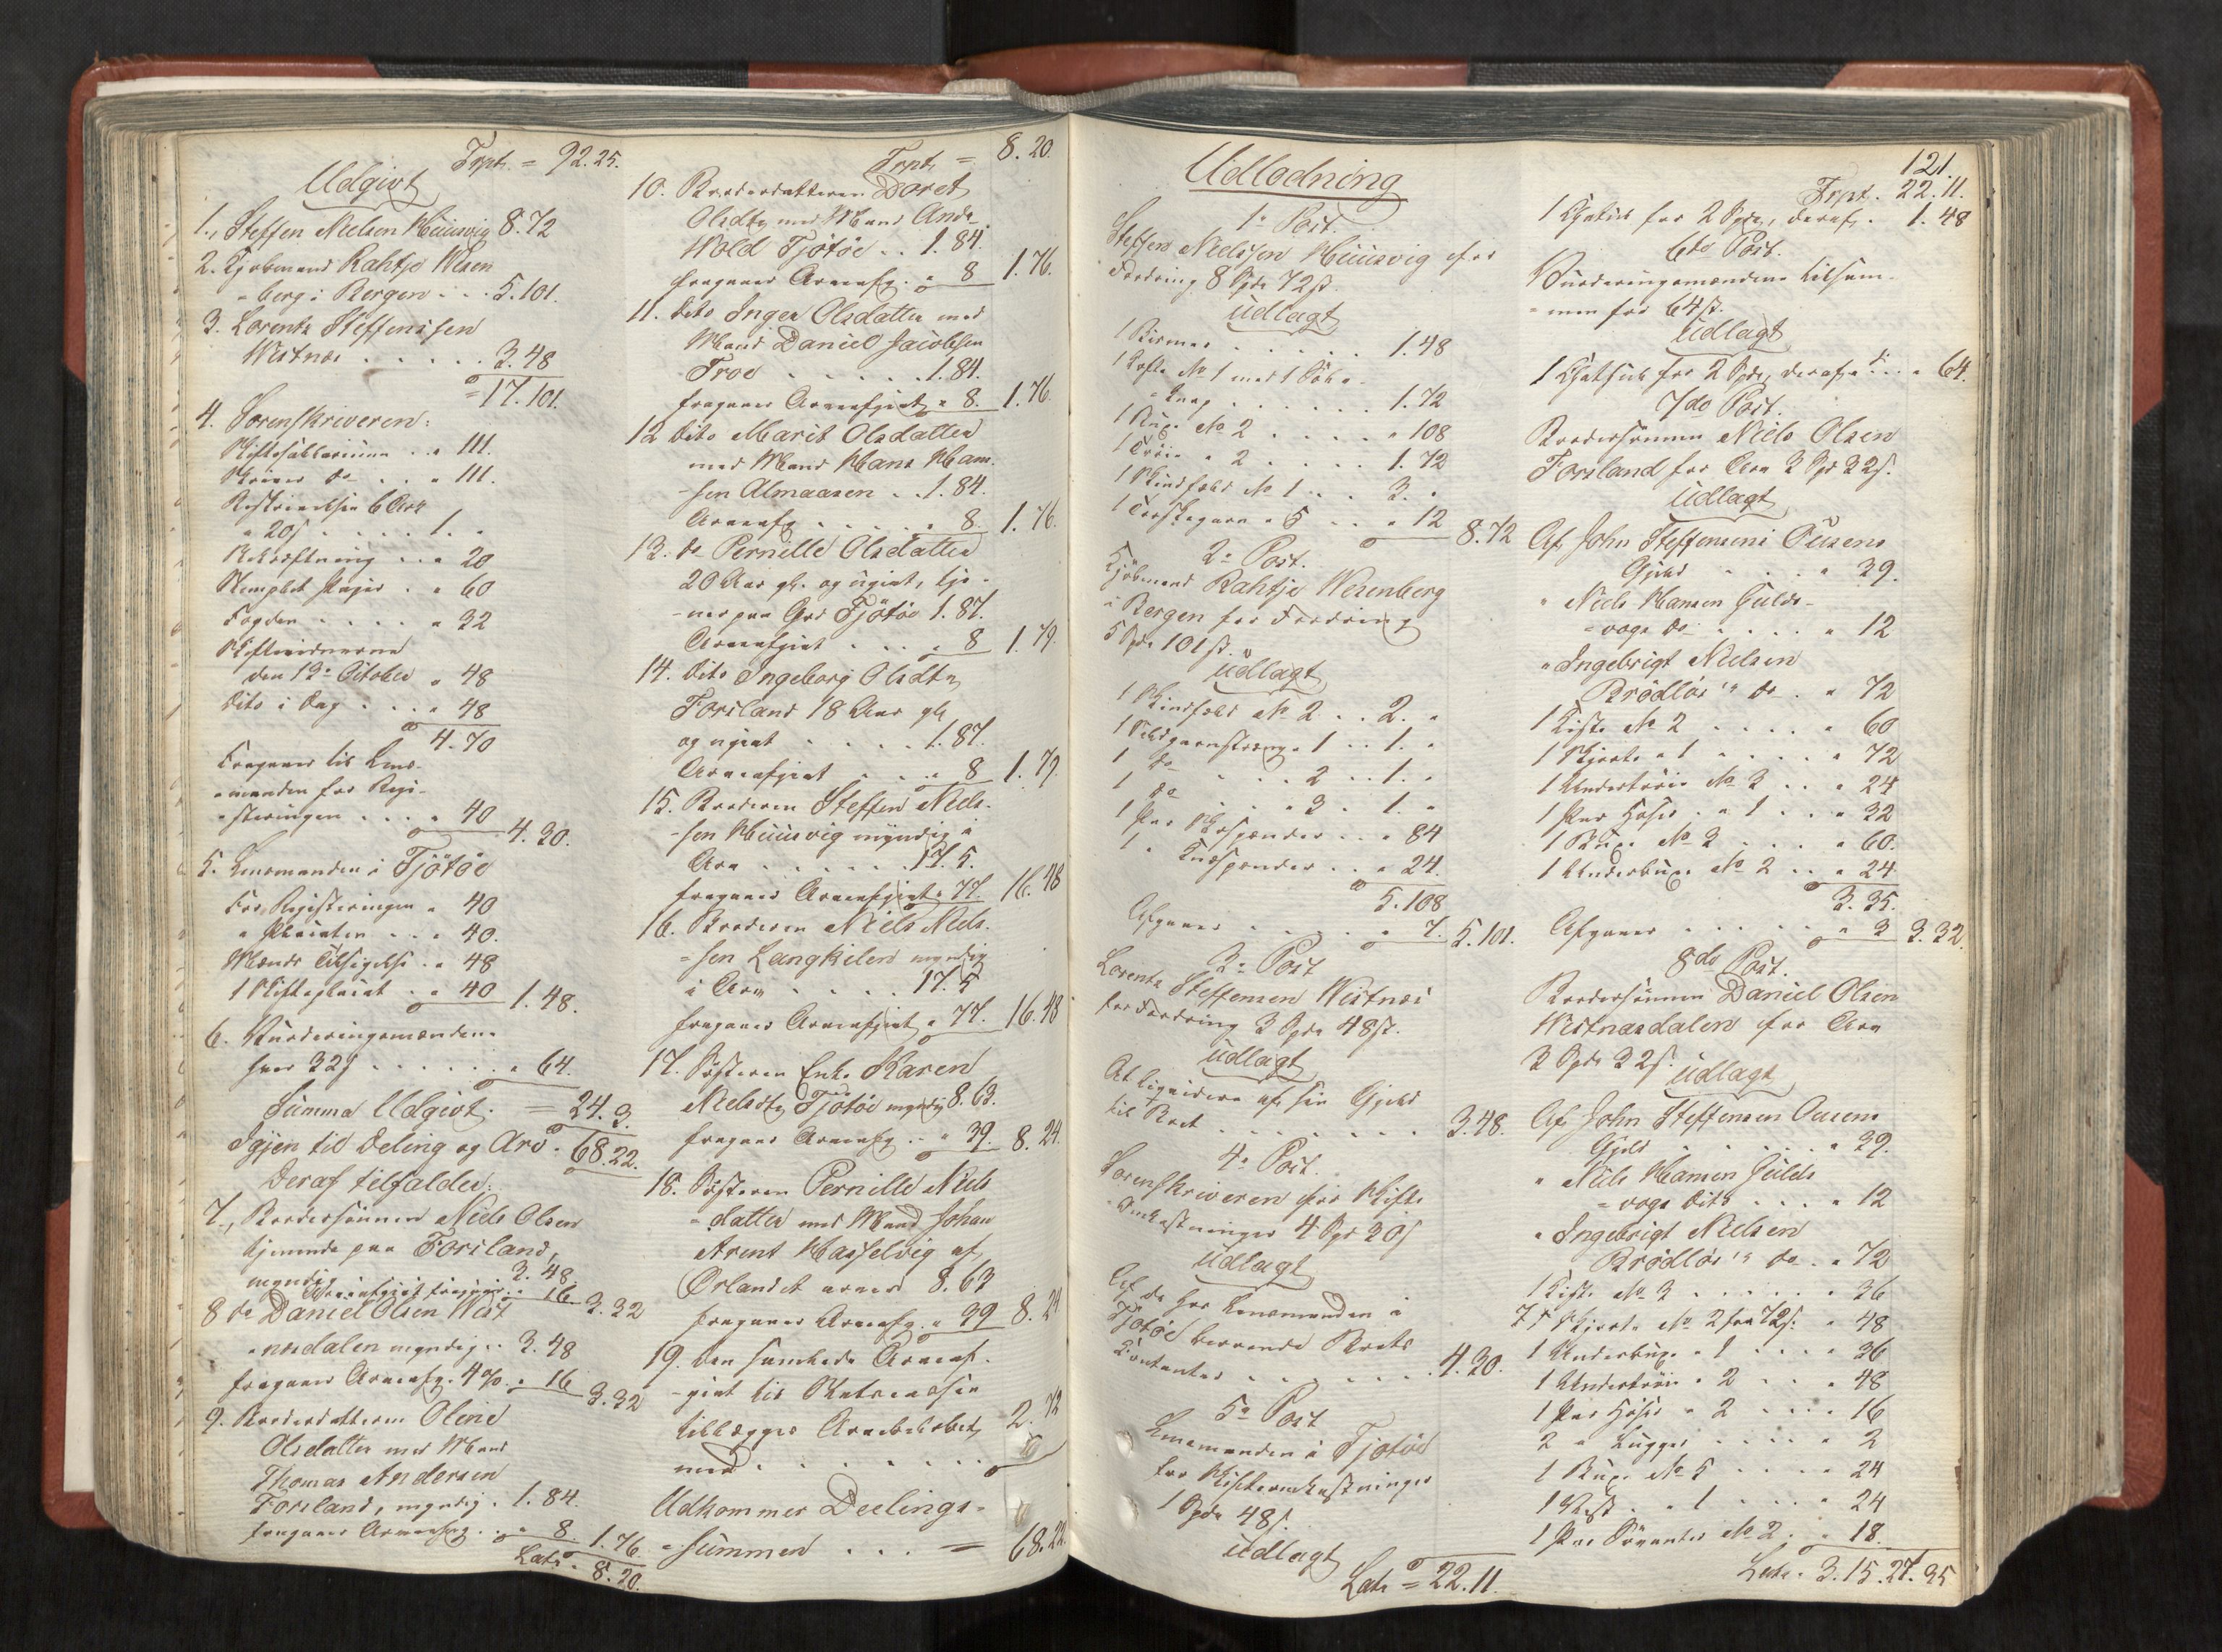 Trpt. = 92.25.
Udgivt
1., Steffen Nielsen Huusvig 8.72
2. Kjøbmand Rahtje Wesen
-berg i Bergen . . . 5.101.
3. Lorentz Steffenssen
Westnæs . . . . . 3.48
= 17.101.
4. Sorenskriveren:
Skiftesallarium . . " 111.
Skriver do . . . " 111.
Beskrivelsen 6 Ark
a 20 s . . . . 1. "
Bekræftning . . " 20
Stemplet Papir . " 60
Fogden . . . . " 32
Skiftevidnerne
den 13de October " 48
dito i Dag . . . " 48
4.70
Fragaaer til Lens-
manden for Regi-
-steringen . . . " 40
4.30.
5. Lensmanden i Tjötöe
For Registeringen " 40
" Placaten . . . " 40.
Mænds Tilsigelse . " 48
1 Skifteplacat . " 40 1.48.
6. Vurderingsmændene
hver 32 s . . . . . " 64.
Summa Udgivt. = 24.3.
Igjen til Deling og Arv . 68.22.
Deraf tilfalder:
7., Brodersönnen Niels Olsen
tjenende paa Forsland,
myndig 3.48.
Arveafgivt fragaaer . " 16. 3.32
8 do Daniel Olsen West
-næsdalen myndig . . 3.48
fragaaer Arveafg. 4 % . " 16 3.32
9. Broderdatteren Oline
Olsdatter med Mand
Thomas Andersen
Forsland, myndig . 1.84.
fragaaer Arveafg. . " 8. 1.76
Lats. 8.20.
Trpt. = 8.20.
10. Broderdatteren Doret
Olsdtr med Mand Ands
Wold Tjötöe . . 1.84.
fragaaer Arveafg. . " 8 1.76.
11. dito Inger Olsdatter med
Mand Daniel Jacobsen
Troe . . . . . . 1.84.
fragaaer Arveafgivt " 8. 1.76.
12 dito Marit Olsdatter
med Mand Hans Han-
-sen Almaasen . . 1.84.
Arveafg . . . . . " 8. 1.76.
13. do Pernille Olsdatter
20 Aar gl. og ugivt, tje-
-ner paa Grd Tjötöe 1.87.
Arveafgivt . . . " 8 1.79.
14. dito Ingeborg Olsdtr
Forsland 18 Aar gl
og ugivt . . . . . 1.87.
Arveafgivt . . . " 8 1.79.
15. Broderen Steffen Niels-
-sen Huusvig myndig i
Arv . . . . . . 17.5.
fragaaer Arveafgivt " 77. 16.48
16. Broderen Niels Niels-
-sen Langkilen myndig
i Arv . . . . . 17.5
fragaaer Arveafgivt " 77. 16.48
17. Søsteren Enke Karen
Nielsdtr Tjötöe myndig 8.63.
fragaaer Arveafg . . " 39. 8.24.
18. Søsteren Pernille Niels
-datter med Mand Johan
Arent Hasselvig af
Ørlandet arver 8.63
fragaaer Arveafg. " 39 8.24
19. Den samlede Arveaf-
-givt til Statscassen
tillægges Arvebeløbet
med . . . . . . . 2.72
Udkommer Deelings-
-summen . . . = 68.22.
121.
Udlodning
1e Post.
Steffen Nielsen Huusvig for
Fordring 8 Spd 72 s.
Udlagt
1 Bismer . . . . . . 1.48
1 Kofte No 1 med 1 Sölv-
-knap . . . . . . 1.72
1 Buxe No 2 . . . . " 108
1 Tröie " 2 . . . . 1.72
1 Skindfeld No 1 . . 3. "
1 Torskegarn " 5 . . " 12 8.72
2e Post.
Kjöbmand Rahtje Wesenberg
i Bergen for Fordring
5 Spd 101 s.
Udlagt
1 Skindfeld No 2 . . 2. "
1 Sildgarnstræng " 1 . . 1. "
1 do . . . 2 . . 1. "
1 do . . . " 3 . 1. "
1 Par Skospænder . . " 84
1 " Knæspænder . . " 24.
5.108
Afgaaer . . . . . " 7. 5.101.
3e Post
Lorentz Steffensen Westnæs
for Fordring 3 Spd 48 s.
Udlagt
At liqvidere af sin Gjeld
til Boet . . . . . . . 3.48.
4e Post.
Sorenskriveren for Skifte
-Omkostninger 4 Spd 30 s
Udlagt
Af de hos Lensmanden i
Tjötöe beroende Boets
Contanter . . . . . . 4.30.
5e Post
Lensmanden i Tjötöe
for Skifteomkostninger
1 Spd 48 s.
Udlagt
Lats = 22.11.
Trpt. 22.11.
1 for 2 Spd, deraf . 1.48
6te Post.
Vurderingsmændene tilsam-
-men for 64 s.
Udlagt
1 for 2 Spd, deraf . . . " 64.
7de Post.
Brodersönnen Niels Olsen
Forsland for Arv 3 Spd 32 s.
Udlagt
Af John Steffensens Ousens
Gjeld . . . . " 39.
" Niels Hansen Gulds-
-vogs do . . . . " 12
" Ingebrigt Nielsen
Brödlös's do . . " 72
1 Kiste No 2 . . . . . " 60
1 Skjorte " 1 . . . . . " 72
1 Undertröie No 3 . . " 24
1 Par Hoser . " 1 . . . " 32
1 Buxe No 3 . . . . " 60.
1 Underbuxe No 2 . . " 24
3.35.
Afgaaer . . . . . . " 3 3.32.
8de Post.
Brodersönnen Daniel Olsen
Westnæsdalen for Arv
3 Spd 32 s.
Udlagt
Af John Steffensen Ousens
Gjeld . . . . . " 39.
" Niels Hansen Gulds
-vogs dito . . . . " 12
" Ingebrigt Nielsen
Brödlös's do . . " 72
1 Kiste No 3 . . . . . " 36
1 Skjorte No 2 for 72 s: " 48
1 Underbuxe " 1 . . . . " 36
1 Undertröie " 2 . . . " 48
1 Par Hoser " 2 . . . . " 16
2 " Lugger . . . . . " 2
1 Buxe No 5 . . . . " 24
1 Vest . " 1 . . . . " 24
1 Par Sövanter No 2 . . " 18.
Lats . 3.15. 27.35